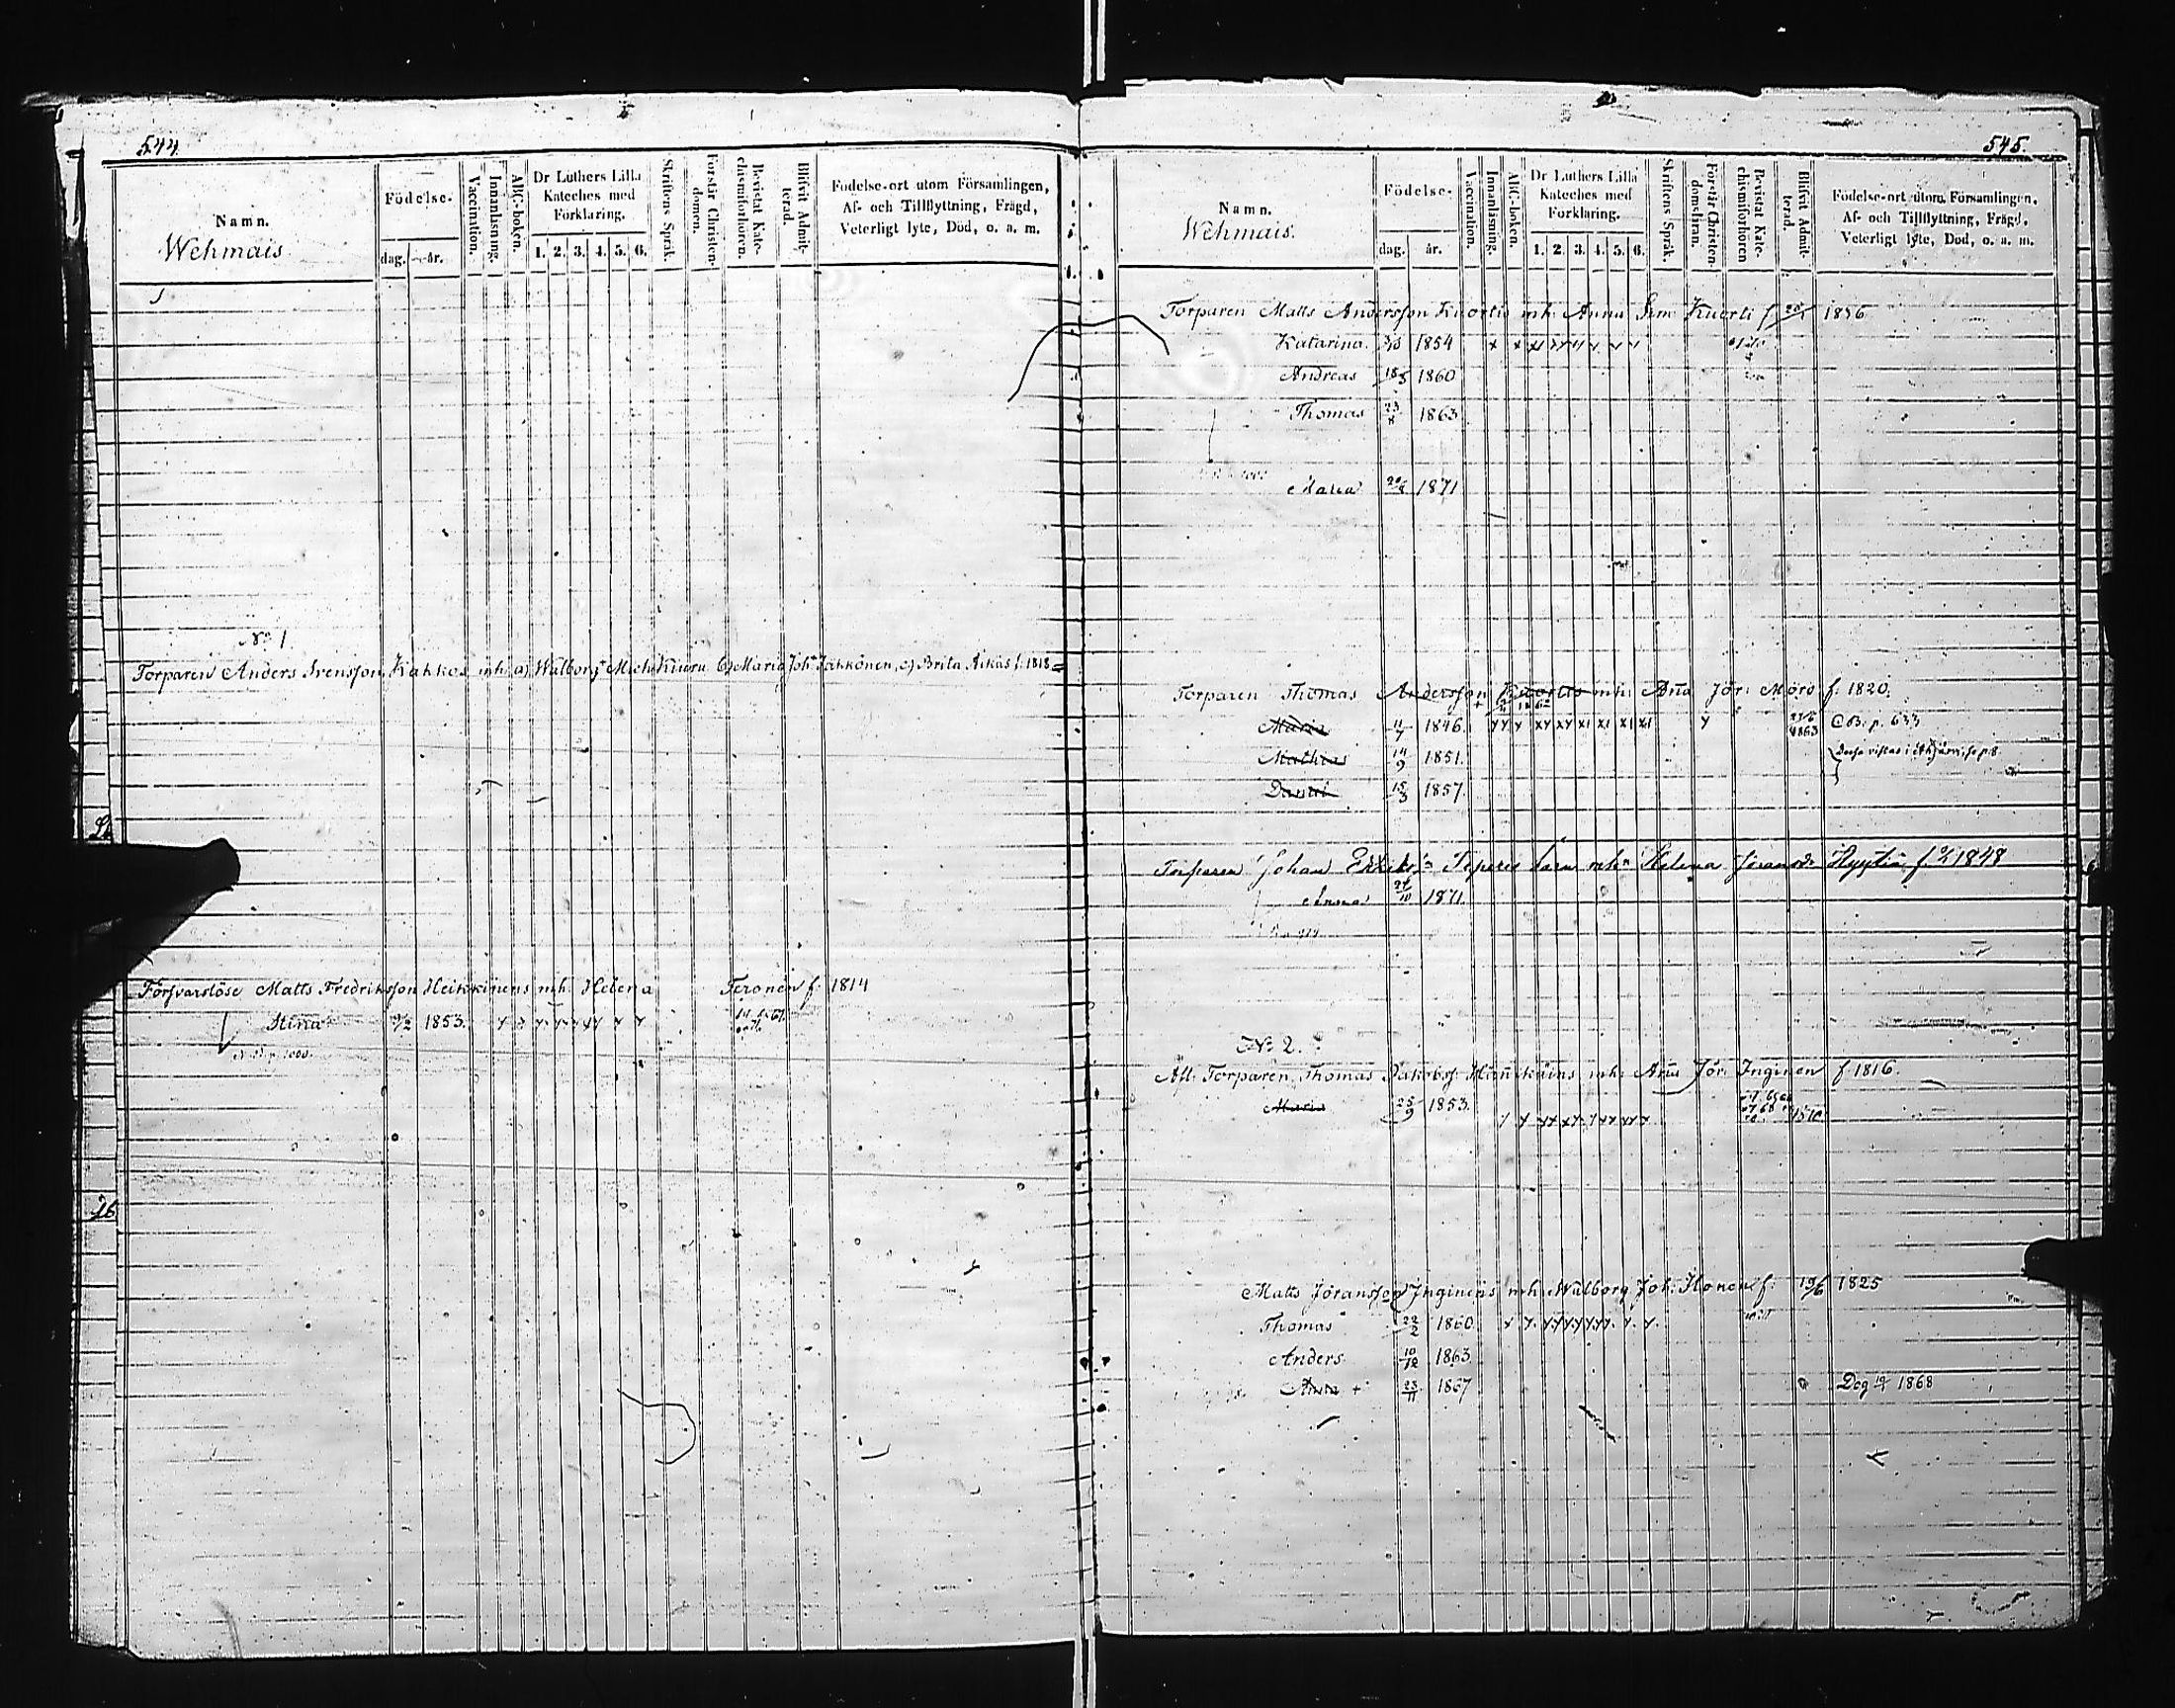 544
Namn.
Wehmais
Födelse-
dag. år.
Vaccination.
Innanläsning.
ABC-boken.
Dr Luthers Lilla
Kateches med
Förklaring.
1. 2. 3. 4. 5. 6.
Skriftens Språk.
Förstår Christen-
domen.
Bevistat Kate-
chismiförhören.
Blifvit Admit-
terad.
Födelse-ort utom Församlingen,
Af- och Tillflyttning, Frägd,
Veterligt lyte, Död, o. a. m.
No 1
Torparen Anders Svensson Kahkos mh. a) Walborg Mich. Kueru b) Maria Joh. Jakkonen, c) Brita Aikäs f. 1818
Försvarslöse Matts Fredriksson Heikkinens mh. Helena Teronen f. 1814
Stina 1853
545.
Namn.
Wehmais.
Födelse-
dag. år.
Vaccination.
Innanläsning.
ABC-boken.
Dr Luthers Lilla
Kateches med
Förklaring.
1. 2. 3. 4. 5. 6.
Skriftens Språk.
Förstår Christen-
domsläran.
Bevistat Kate-
chismiförhören
Blifvit Admit-
terad.
Födelse-ort utom Församlingen,
Af- och Tillflyttning, Frägd,
Veterligt lyte, Död, o. a. m.
Torparen Matts Andersson Kuortis mh. Anna Sim. Kuorti f. 1856
Katarina 1854
Andreas 18/5 1860
Thomas 23/8 1863
Maria 1871
Torparen Thomas Andersson Kuortis mh. Ana Jör. Mörö f. 1820.
Maria 11/7 1846. C.B. p. 633
Mathias 14/9 1851.
Daniel 15/3 1857.
Torparen Johan Eriks. barn mh. Helena Göransd. Hyytiä f. 1848
Anna 1871
No 2.
Afl. Torparen Thomas Jakobss. mh. Ana Jör. Inginen f. 1816.
Maria 25/9 1853.
Matts Jöransson Inginens mh. Walborg Joh. Honen f. 19/6 1825
Thomas 22/2 1860
Anders 10/12 1863
Anna + 23/11 1867 Dog 1868